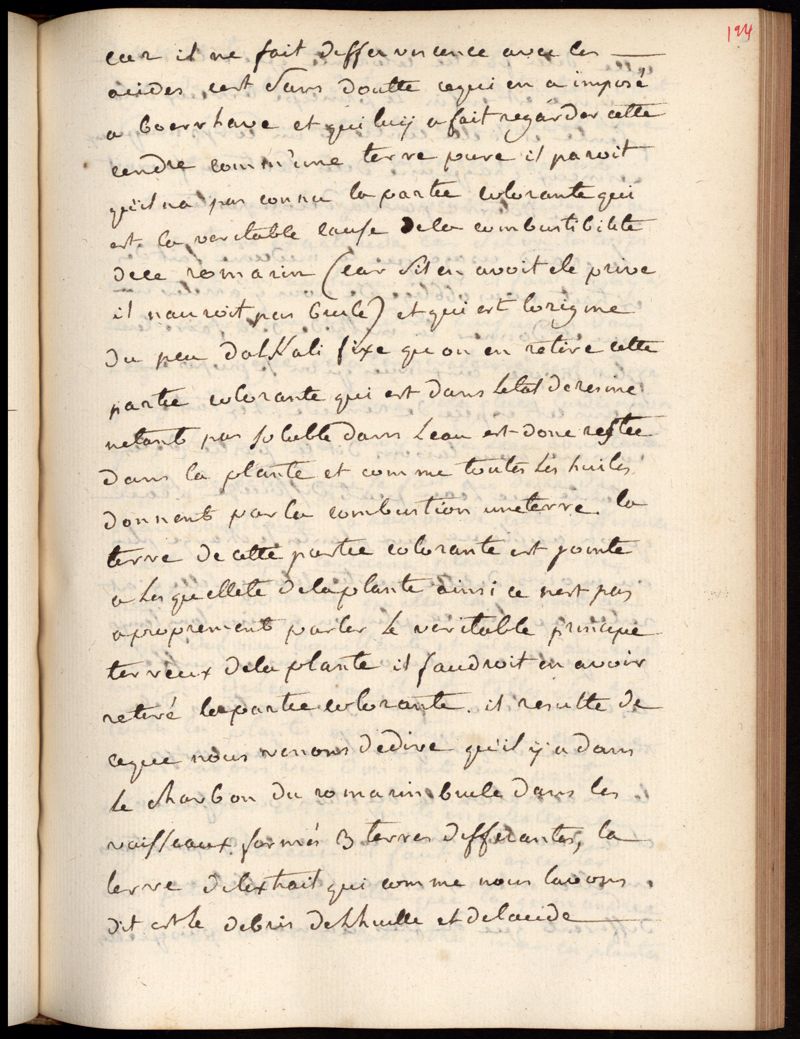 194
car il ne fait effervescence avec les
acides cest sans doutte cequi en a imposé
a Boerrhave et qui luij a fait regarder cette
cendre comm'une terre pure il paroit
qu'il na pas connu la partie colorante qui
est la veritable cause dela combustibilite
dece romarin (car sil en avoit ete prive
il nauroit pas brule) et qui est lorigine
du peu dalkali fixe quon en retire cette
partie colorante qui est dans letat deresine
netant pas soluble dans leau est donc restee
dans la plante et comme toutes les huiles
donnent par la combustion uneterre la
terre de cette partie colorante est jointe
a les quellete delaplante ainsi ce nest pas
aproprement parler le veritable principe
terreux dela plante il faudroit en avoir
retiré lapartie colorante. il resulte de
ceque nous venons dedire qu'il ÿ a dans
le charbon du romarin brule dans les
vaisseaux fermés 3 terres differantes, la
terre delextrait qui comme nous lavons
dit est le debris delhuille et delacide